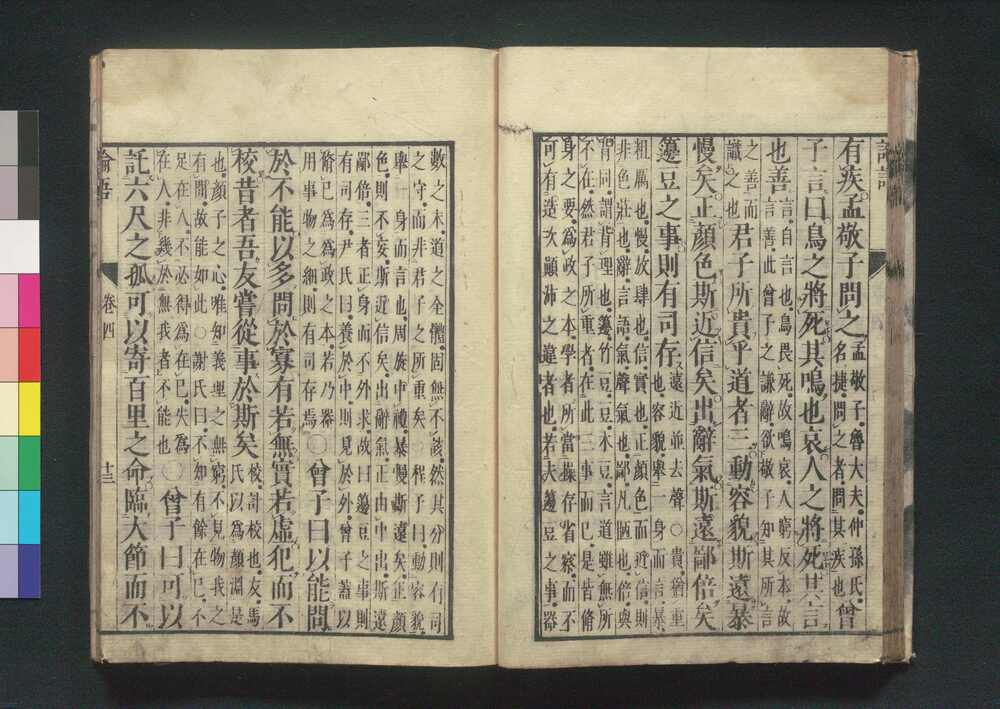 論語
有疾孟敬子問之
孟敬子魯大夫仲孫氏
名捷問之者問其疾也
曾
子言曰鳥之將死其鳴也哀人之將死其言
也善
言自言也鳥畏死故鳴哀人窮反本故
言善此曾子之謙辭欲敬子知其所言
之善而
識之也
君子所貴乎道者三動容貌斯遠暴
慢矣正顏色斯近信矣出辭氣斯遠鄙倍矣
籩豆之事則有司存
遠近並去聲○貴猶重
也容貌舉一身而言暴
粗厲也慢放肆也信實也正顏色而近信則
非色莊也辭言語氣聲氣也鄙凡陋也倍與
背同謂背理也籩竹豆豆木豆言道雖無所
不在然君子所重者在此三事而已是皆脩
身之要爲政之本學者所當操存省察而不
可有造次顛沛之違者也若夫籩豆之事器
數之末道之全體固無不該然其分則有司
之守而非君子之所重矣○程子曰動容貌
舉一身而言也周旋中禮暴慢斯遠矣正顏
色則不妄斯近信矣出辭氣正由中出斯遠
鄙倍三者正身而不外求故曰籩豆之事則
有司存尹氏曰養於中則見於外曾子蓋以
脩己爲爲政之本若乃器
用事物之細則有司存焉
○曾子曰以能問
於不能以多問於寡有若無實若虛犯而不
校昔者吾友嘗從事於斯矣
校計校也友馬
氏以爲顏淵是
也顏子之心唯知義理之無窮不見物我之
有間故能如此○謝氏曰不知有餘在己不
足在人不必得爲在己失爲
在人非幾於無我者不能也
○曾子曰可以
託六尺之孤可以寄百里之命臨大節而不
論語 卷四 十三